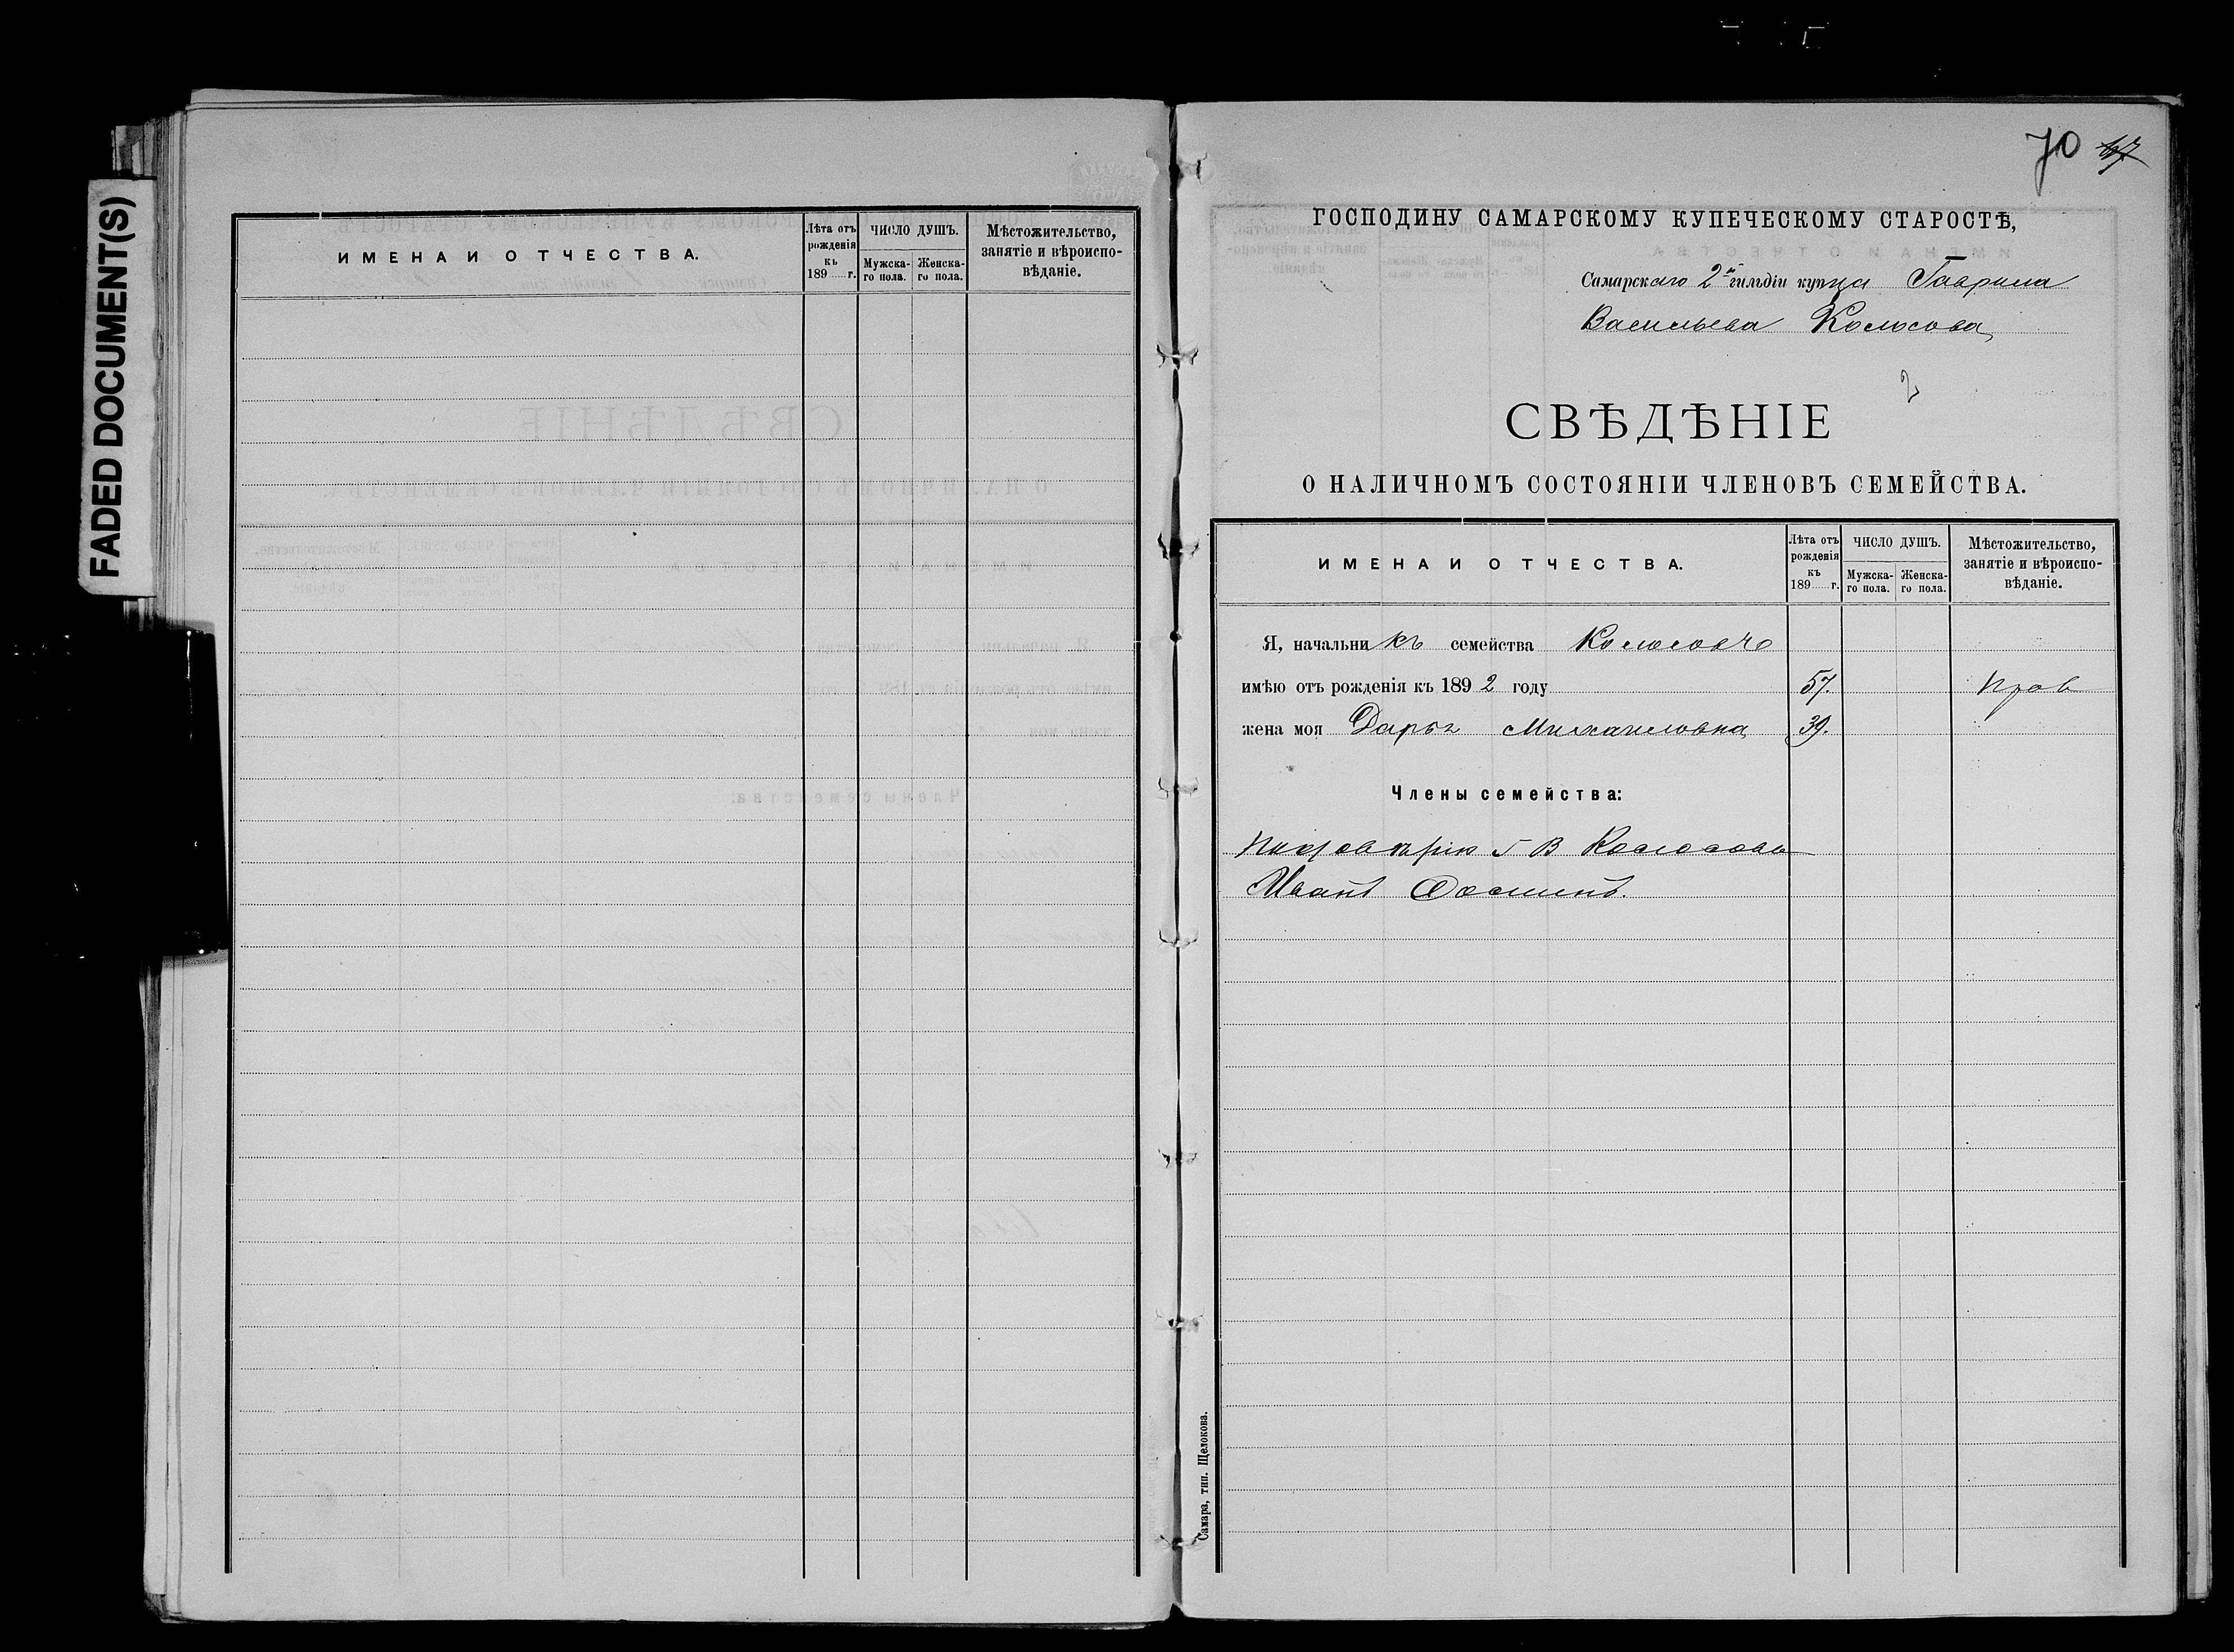 FADED DOCUMENT(S)
ИМЕНА И ОТЧЕСТВА.
Лѣта отъ рожденія къ 189 г.
ЧИСЛО ДУШЪ.
Мужска-го пола.
Женска-го пола.
Мѣстожительство, занятіе и вѣроиспо-вѣданіе.
70 67
ГОСПОДИНУ САМАРСКОМУ КУПЕЧЕСКОМУ СТАРОСТѢ,
Самарскаго 2й гильдіи купца Гаврила
Васильева Колосова
СВѢДѢНІЕ
О НАЛИЧНОМЪ СОСТОЯНІИ ЧЛЕНОВЪ СЕМЕЙСТВА.
ИМЕНА И ОТЧЕСТВА.
Лѣта отъ рожденія къ 189 г.
ЧИСЛО ДУШЪ.
Мужска-го пола.
Женска-го пола.
Мѣстожительство, занятіе и вѣроиспо-вѣданіе.
Я, начальникъ семейства Колосовъ
имѣю отъ рожденія къ 1892 году 57. Прав
жена моя Дарья Михаиловна 39.
Члены семейства:
Г В Колосова
Иванъ
Самара, тип. Щелокова.